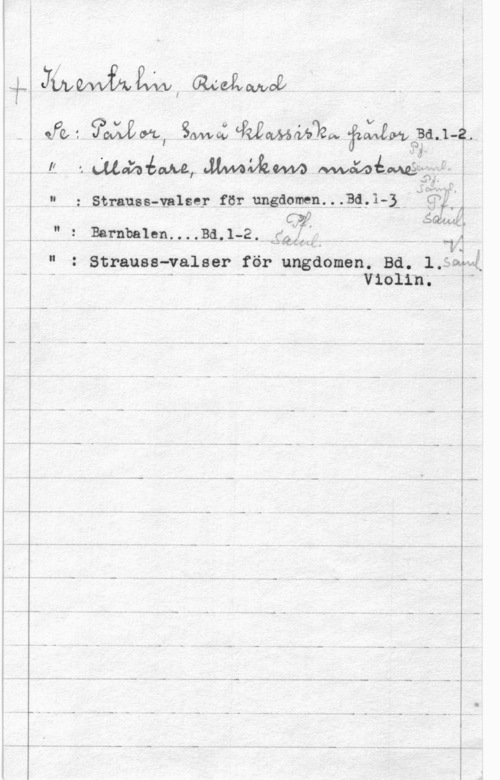 + Krentzlin, Richard
Se: Pärlor, Små klassiska pärlor Bd.1-2.
Pf.
" : Mästare, Musikens mästare Saml.
Pf. Saml.
" : Strauss-valser för ungdomen...Bd.1-3 Pf.
Saml.
" : Barnbalen....Bd.1-2. Pf. Saml.
" : Strauss-valser för ungdomen. Bd. 1. V. Saml.
Violin.